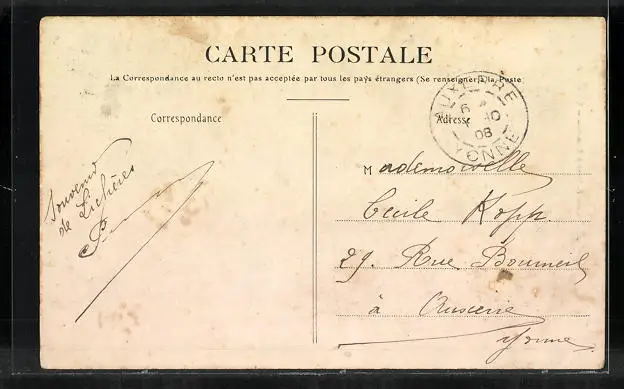 CARTE POSTALE
La Correspondance au recto n'est pas acceptée par tous les pays étrangers (Se renseigner à la Poste
Correspondance
Adresse
AUXERRE
6
10
08
YONNE
Souvenir
de Lichères
Mademoiselle
Cécile Kopp
29. Rue
à Auxerre
Yonne